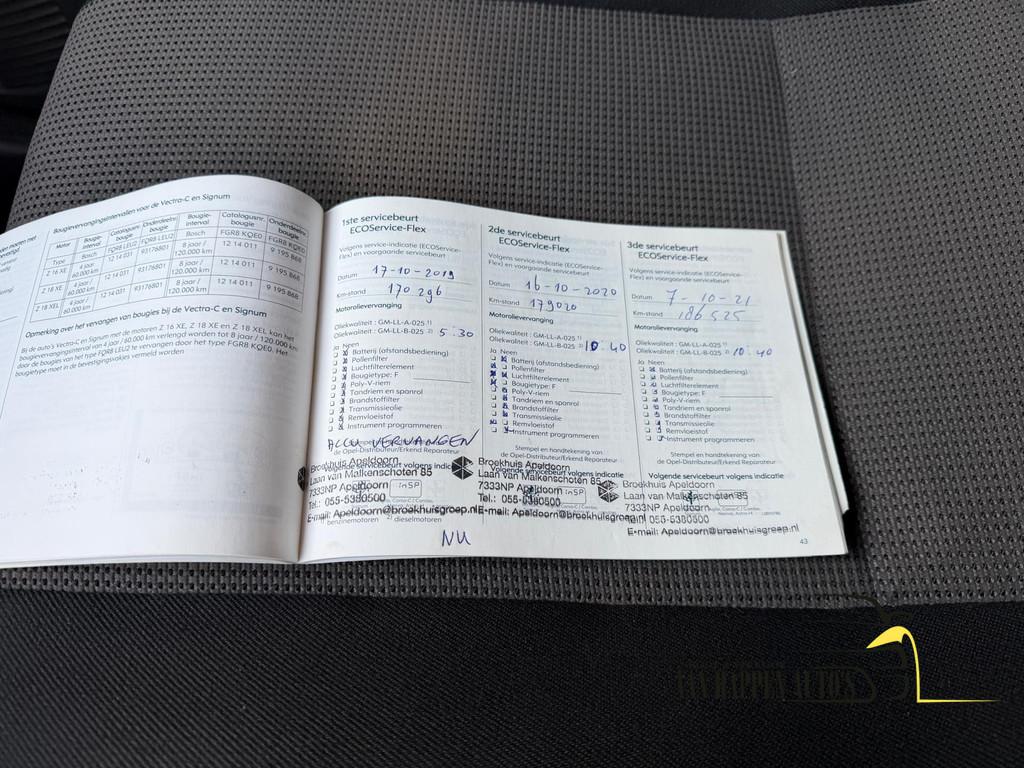 Bougievervangingsintervallen voor de Vectra-C en Signum
Motor Bougie-interval Catalogusnr. bougie Onderdeelnr. bougie Bougie-interval Catalogusnr. bougie Onderdeelnr.
Type Bosch FQR8 LEU2 FQR8 LEU2 Bosch FGR8 KQE0 FGR8 KQE0
Z 16 XE 4 jaar / 60.000 km 12 14 031 93176801 8 jaar / 120.000 km 12 14 011 9 195 868
Z 18 XE 4 jaar / 60.000 km 12 14 031 93176801 8 jaar / 120.000 km 12 14 011 9 195 868
Z 18 XEL 4 jaar / 60.000 km 12 14 031 93176801 8 jaar / 120.000 km 12 14 011 9 195 868
Opmerking over het vervangen van bougies bij de Vectra-C en Signum
Bij de auto's Vectra-C en Signum met de motoren Z 16 XE, Z 18 XE en Z 18 XEL kan het
bougievervangingsinterval van 4 jaar / 60.000 km verlengd worden tot 8 jaar / 120.000 km
door de bougies van het type FQR8 LEU2 te vervangen door het type FGR8 KQE0. Het
bougietype moet in de bevestigingsvakjes vermeld worden
1ste servicebeurt
ECOService-Flex
Volgens service-indicatie (ECOService-
Flex) en voorgaande servicebeurt
Datum 17-10-2019
Km-stand 170 296
Motorolievervanging
Oliekwaliteit : GM-LL-A-025 1)
Oliekwaliteit : GM-LL-B-025 2) 5-30
Ja Neen
Batterij (afstandsbediening)
Pollenfilter
Luchtfilterelement
Bougietype: F
Poly-V-riem
Tandriem en spanrol
Brandstoffilter
Transmissieolie
Remvloeistof
Instrument programmeren
ACCU VERVANGEN
Broekhuis Apeldoorn
Volgende servicebeurt volgens indicatie
Laan van Malkenschoten 85
7333NP Apeldoorn
InSP
Tel.: 055-5380500
E-mail: Apeldoorn@broekhuisgroep.nl
benzinemotoren 2) dieselmotoren
NU
2de servicebeurt
ECOService-Flex
Volgens service-indicatie (ECOService-
Flex) en voorgaande servicebeurt
Datum 16-10-2020
Km-stand 179020
Motorolievervanging
Oliekwaliteit : GM-LL-A-025 1)
Oliekwaliteit : GM-LL-B-025 2) 10-40
Ja Neen
Batterij (afstandsbediening)
Pollenfilter
Luchtfilterelement
Bougietype: F
Poly-V-riem
Tandriem en spanrol
Brandstoffilter
Transmissieolie
Remvloeistof
Instrument programmeren
Stempel en handtekening van
de Opel-Distributeur/Erkend Reparateur
Broekhuis Apeldoorn
Volgende servicebeurt volgens indicatie
Laan van Malkenschoten 85
7333NP Apeldoorn
InSP
Tel.: 055-5380500
E-mail: Apeldoorn@broekhuisgroep.nl
3de servicebeurt
ECOService-Flex
Volgens service-indicatie (ECOService-
Flex) en voorgaande servicebeurt
Datum 7-10-21
Km-stand 186525
Motorolievervanging
Oliekwaliteit : GM-LL-A-025 1)
Oliekwaliteit : GM-LL-B-025 2) 10-40
Ja Neen
Batterij (afstandsbediening)
Pollenfilter
Luchtfilterelement
Bougietype: F
Poly-V-riem
Tandriem en spanrol
Brandstoffilter
Transmissieolie
Remvloeistof
Instrument programmeren
Stempel en handtekening van
de Opel-Distributeur/Erkend Reparateur
Volgende servicebeurt volgens indicatie
Broekhuis Apeldoorn
Laan van Malkenschoten 85
7333NP Apeldoorn
055-5380500
E-mail: Apeldoorn@broekhuisgroep.nl
43
VAN DAPPEN AUTO'S